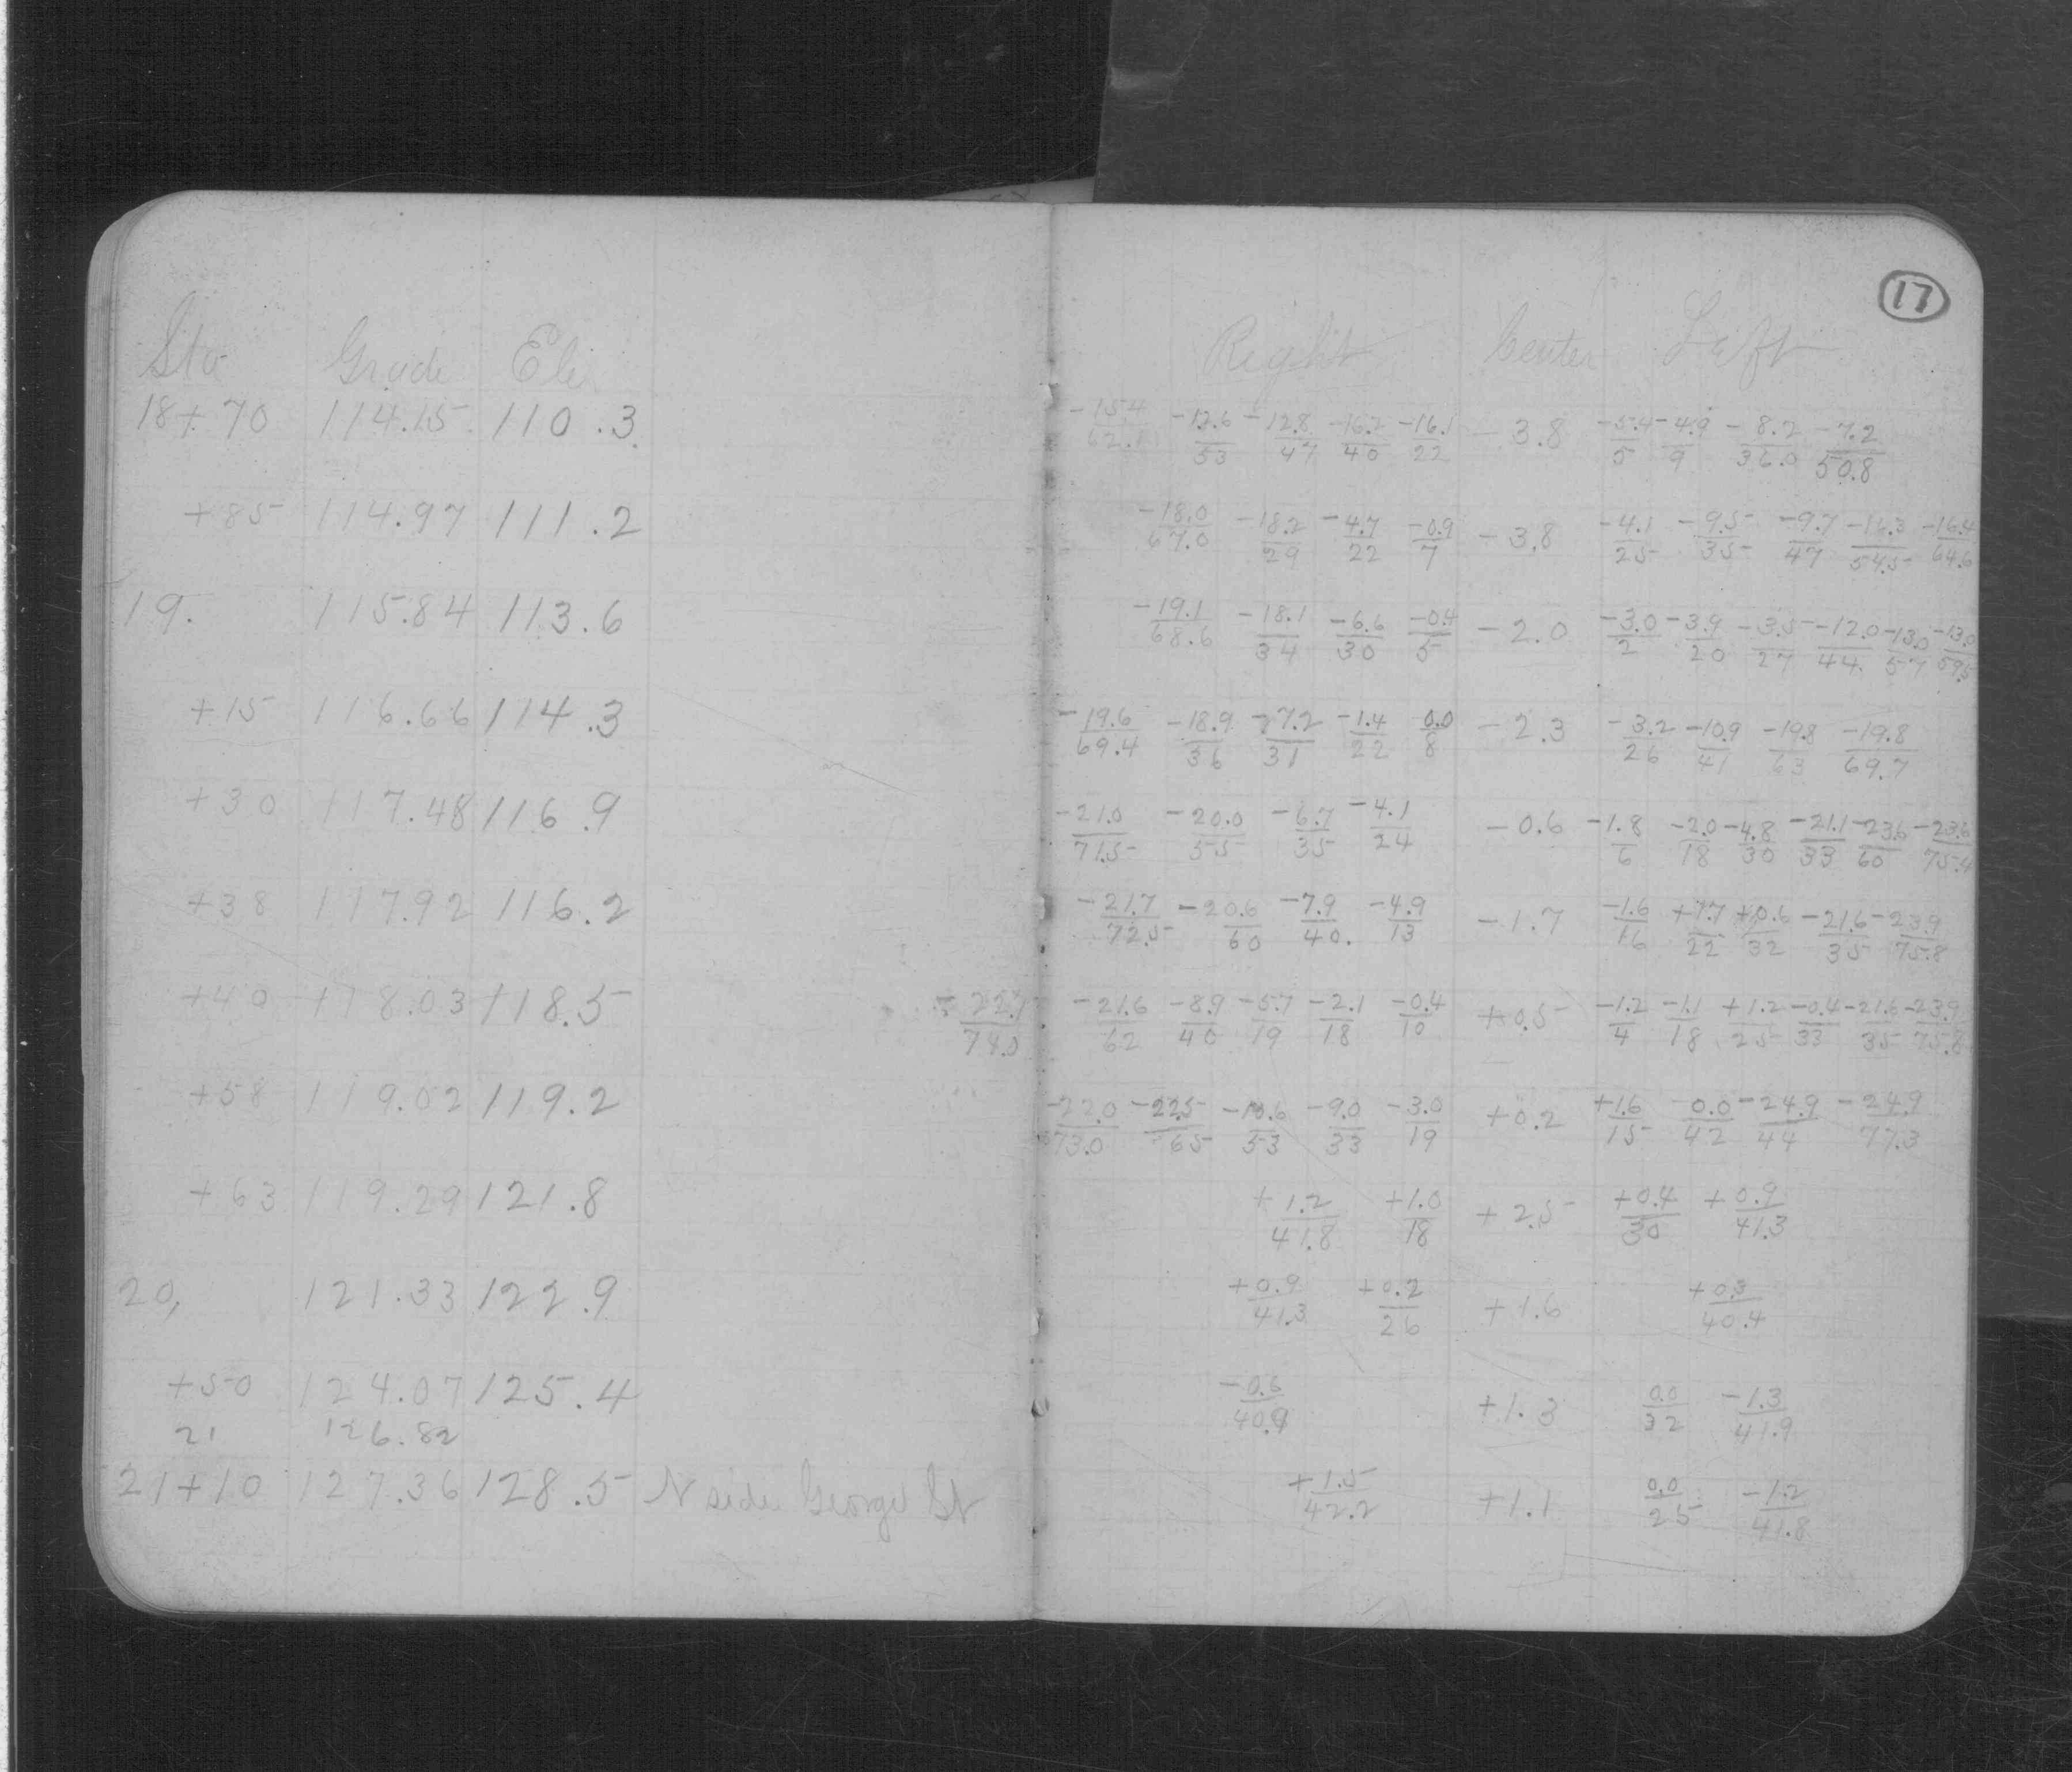 17
Sta Grade Elev Right Center Left
18+70 114.15 110.3 -15.4/62.1 -12.6/53 -12.8/47 -16.2/40 -16.1/22 -3.8 -5.4/5 -4.9/9 -8.2/36.0 -7.2/50.8
+85 114.97 111.2 -18.0/67.0 -18.2/29 -4.7/22 -0.9/7 -3.8 -4.1/25 -9.5/35 -9.7/47 -16.3/54.5 -16.4/64.6
19. 115.84 113.6 -19.1/68.6 -18.1/34 -6.6/30 -0.4/5 -2.0 -3.0/2 -3.9/20 -3.5/27 -12.0/44. -13.0/57 -13.0/59.5
+15 116.66 114.3 -19.6/69.4 -18.9/36 -7.2/31 -1.4/22 0.0/8 -2.3 -3.2/26 -10.9/41 -19.8/63 -19.8/69.7
+30 117.48 116.9 -21.0/71.5 -20.0/55 -6.7/35 -4.1/24 -0.6 -1.8/6 -2.0/18 -4.8/30 -21.1/33 -23.6/60 -23.6/75.4
+38 117.92 116.2 -21.7/72.5 -20.6/60 -7.9/40. -4.9/13 -1.7 -1.6/16 +1.7/22 +0.6/32 -21.6/35 -23.9/75.8
+40 118.03 118.5 -22.7/74.0 -21.6/62 -8.9/40 -5.7/19 -2.1/18 -0.4/10 +0.5 -1.2/4 -1.1/18 +1.2/25 -0.4/33 -21.6/35 -23.9/75.8
+58 119.02 119.2 -22.0/73.0 -22.5/65 -10.6/53 -9.0/33 -3.0/19 +0.2 +1.6/15 -0.0/42 -24.9/44 -24.9/77.3
+63 119.29 121.8 +1.2/41.8 +1.0/18 +2.5 +0.4/30 +0.9/41.3
20, 121.33 122.9 +0.9/41.3 +0.2/26 +1.6 +0.3/40.4
+50 124.07 125.4 -0.6/40.9 +1.3 0.0/32 -1.3/41.9
21 126.82
21+10 127.36 128.5 N side George St +1.5/42.2 +1.1 0.0/25 -1.2/41.8